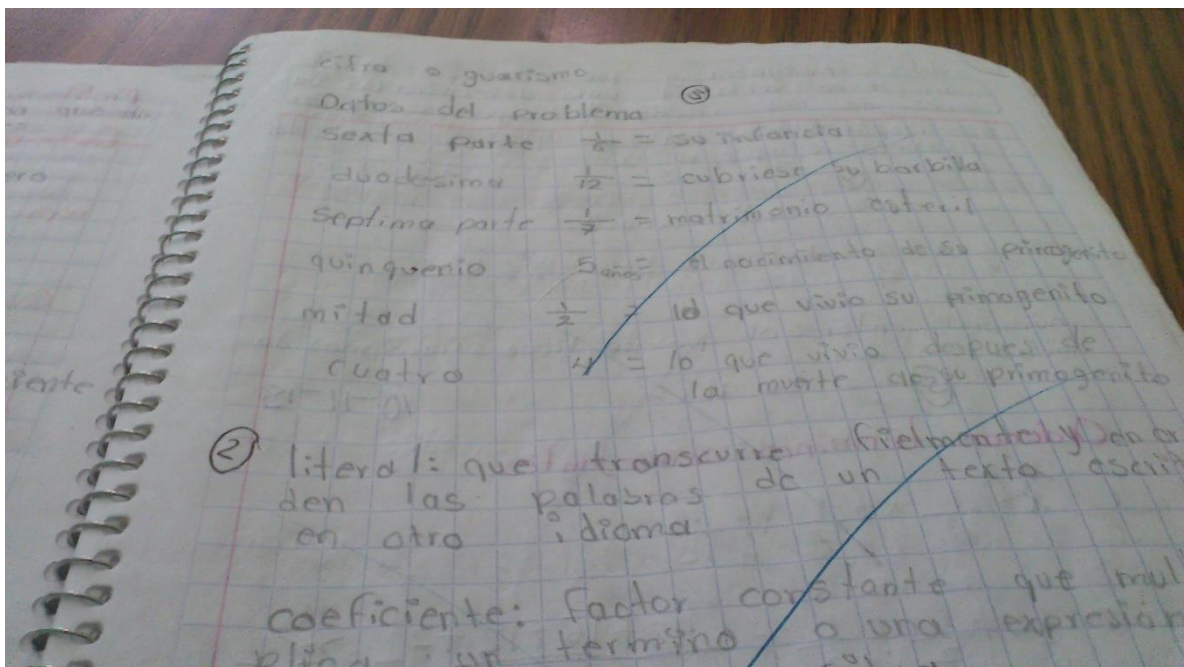 cifra o guarismo
Datos del problema ⑤
sexta parte 1/6 = su infancia
duodesima 1/12 = cubriese su barbilla
septima parte 1/7 = matrimonio esteril
quinquenio 5 años = el nacimiento de su primogenito
mitad 1/2 = lo que vivio su primogenito
cuatro 4 = lo que vivio despues de
la muerte de su primogenito
iente
② literal: que transcurre fielmente y
den las palabras de un texto escrit
en otro idioma
coeficiente: factor constante que mul
plica un termino o una expresión